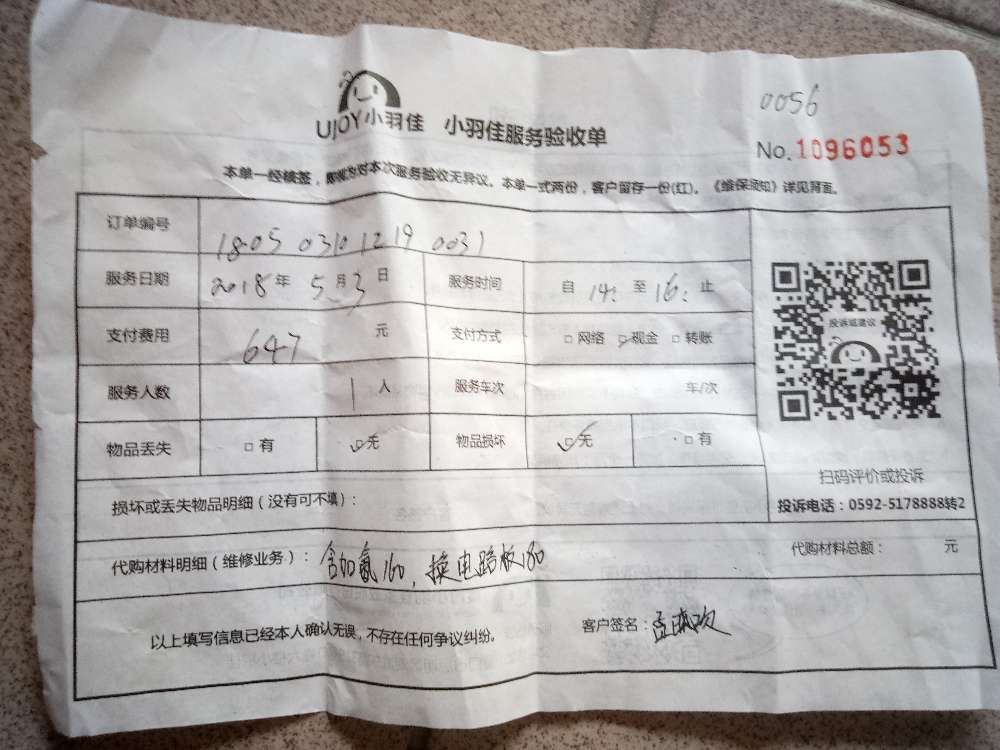 0056
UJOY小羽佳 小羽佳服务验收单
No.1096053
本单一经核签,即视为对本次服务验收无异议。本单一式两份,客户留存一份(红)。《维保须知》详见背面。
订单编号 1805 0310 1219 0031
服务日期 2018年5月3日 服务时间 自14:至16:止
支付费用 647元 支付方式 □网络 ☑现金 □转账
投诉或建议
服务人数 1人 服务车次 车/次
物品丢失 □有 ☑无 物品损坏 ☑无 □有
扫码评价或投诉
损坏或丢失物品明细(没有可不填):
投诉电话:0592-5178888转2
代购材料明细(维修业务):含加氟160,换电路板180
代购材料总额: 元
以上填写信息已经本人确认无误,不存在任何争议纠纷。
客户签名:孟